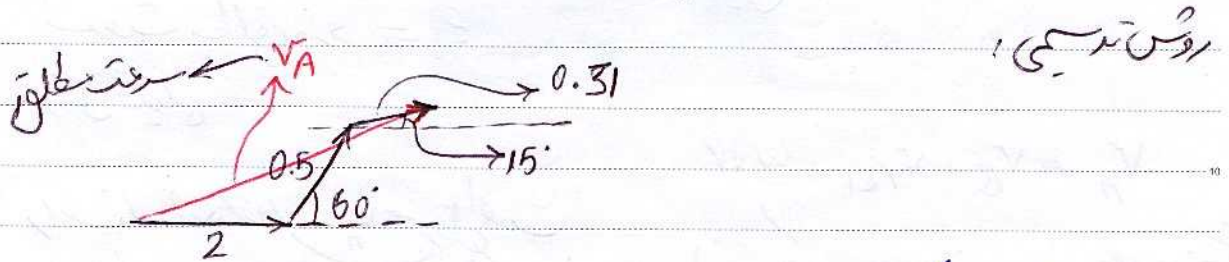 روش ترسیمی :
سرعت مطلق ← V_A
0.31
0.5
15°
60°
2
10